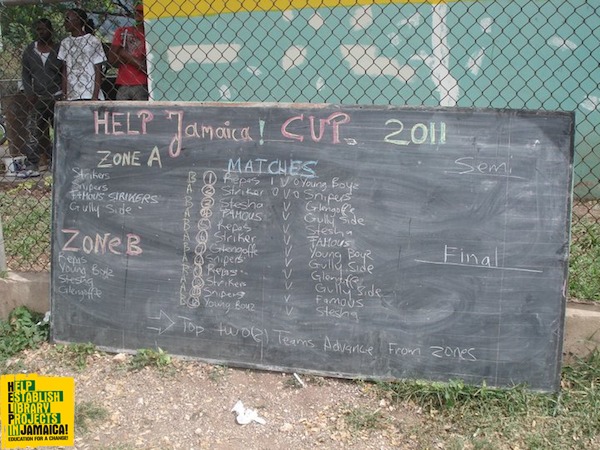 HELP Jamaica! CUP 2011
ZONE A
Strikers
Snipers
FAMOUS STRIKERS
Gully Side
ZONE B
Repas
Young Boyz
Stesha
Glengoffe
MATCHES
B 1 Repas 1 V 0 Young Boyz
A 2 Striker 0 V 0 Snipers
B 3 Stesha V Glengoffe
A 4 FAMOUS V Gully Side
B Repas V Stesha
A Striker V FAMOUS
B Glengoffe V Young Boyz
A Snipers V Gully Side
B Repas V Glengoffe
A Strikers V Gully Side
A Snipers V Famous
B Young Boyz V Stesha
Semi
Final
Top two(2) Teams Advance From zones
HELP
ESTABLISH
LIBRARY
PROJECTS
IN JAMAICA!
EDUCATION FOR A CHANGE!